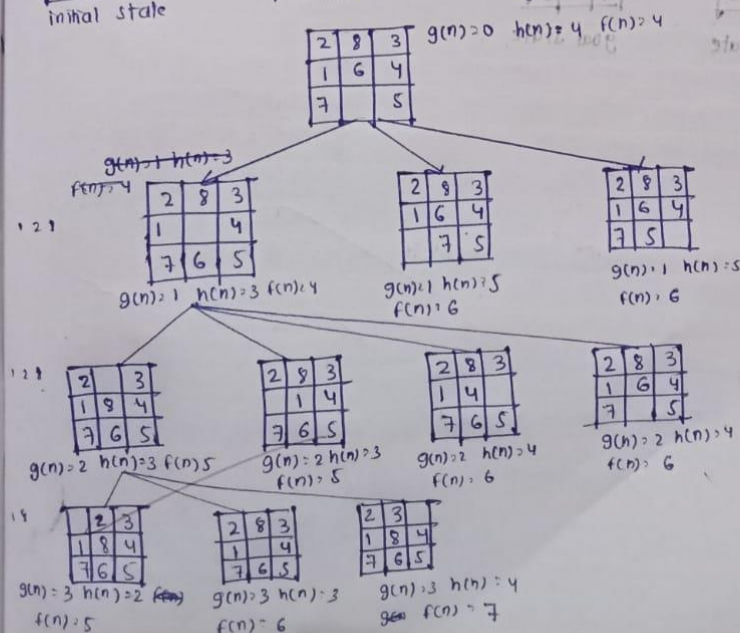 initial state
2 8 3
1 6 4
7 5
g(n)=0 h(n)=4 f(n)=4
g(n)=1 h(n)=3
f(n)=4
2 8 3
1 4
7 6 5
g(n)=1 h(n)=3 f(n)=4
2 8 3
1 6 4
7 5
g(n)=1 h(n)=5
f(n)=6
2 8 3
1 6 4
7 5
g(n)=1 h(n)=5
f(n)=6
2 3
1 8 4
7 6 5
g(n)=2 h(n)=3 f(n)5
2 8 3
1 4
7 6 5
g(n)=2 h(n)=3
f(n)=5
2 8 3
1 4
7 6 5
g(n)=2 h(n)=4
f(n)=6
2 8 3
1 6 4
7 5
g(n)=2 h(n)=4
f(n)=6
2 3
1 8 4
7 6 5
g(n)=3 h(n)=2
f(n)=5
2 8 3
1 4
7 6 5
g(n)=3 h(n)=3
f(n)=6
2 3
1 8 4
7 6 5
g(n)=3 h(n)=4
f(n)=7